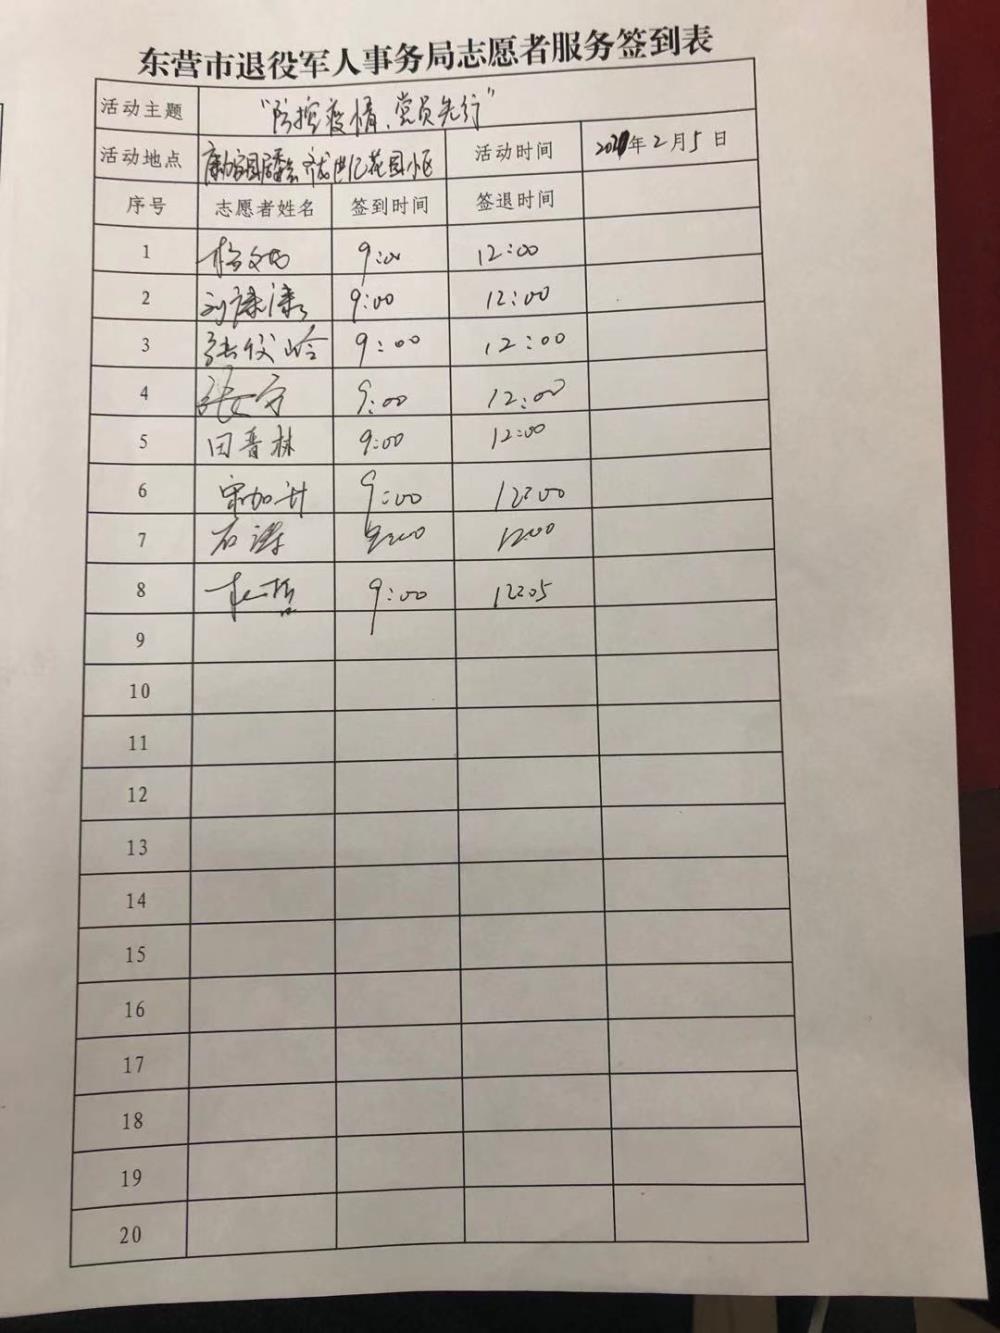 东营市退役军人事务局志愿者服务签到表
活动主题 "防控疫情、党员先行"
活动地点 花园小区 活动时间 年2月5日
序号 志愿者姓名 签到时间 签退时间
1 9:00 12:00
2 刘康 9:00 12:00
3 张俊岭 9:00 12:00
4 张 9:00 12:00
5 田晋林 9:00 12:00
6 宋加升 9:00 12:00
7 石涛 9:00 12:00
8 9:00 12:05
9
10
11
12
13
14
15
16
17
18
19
20